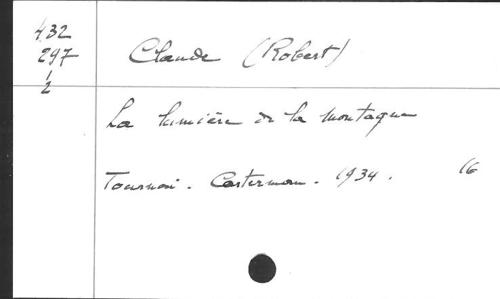 432
297
1/2
Claude (Robert)
La lumière de la montagne
Tournai. Casterman. 1934. 16